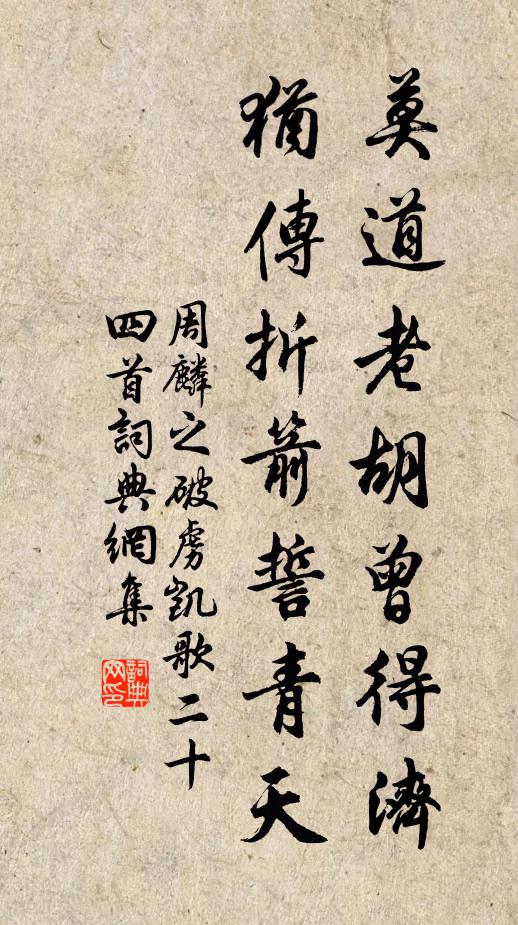 莫道老胡曾得濟
猶傳折箭誓青天
周麟之破虜凱歌二十
四首詞典網集
詞典
网印